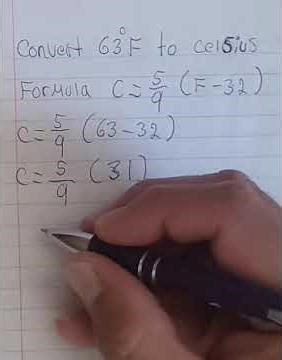 Convert 63°F to celsius
Formula C = 5/9 (F - 32)
C = 5/9 (63 - 32)
C = 5/9 (31)